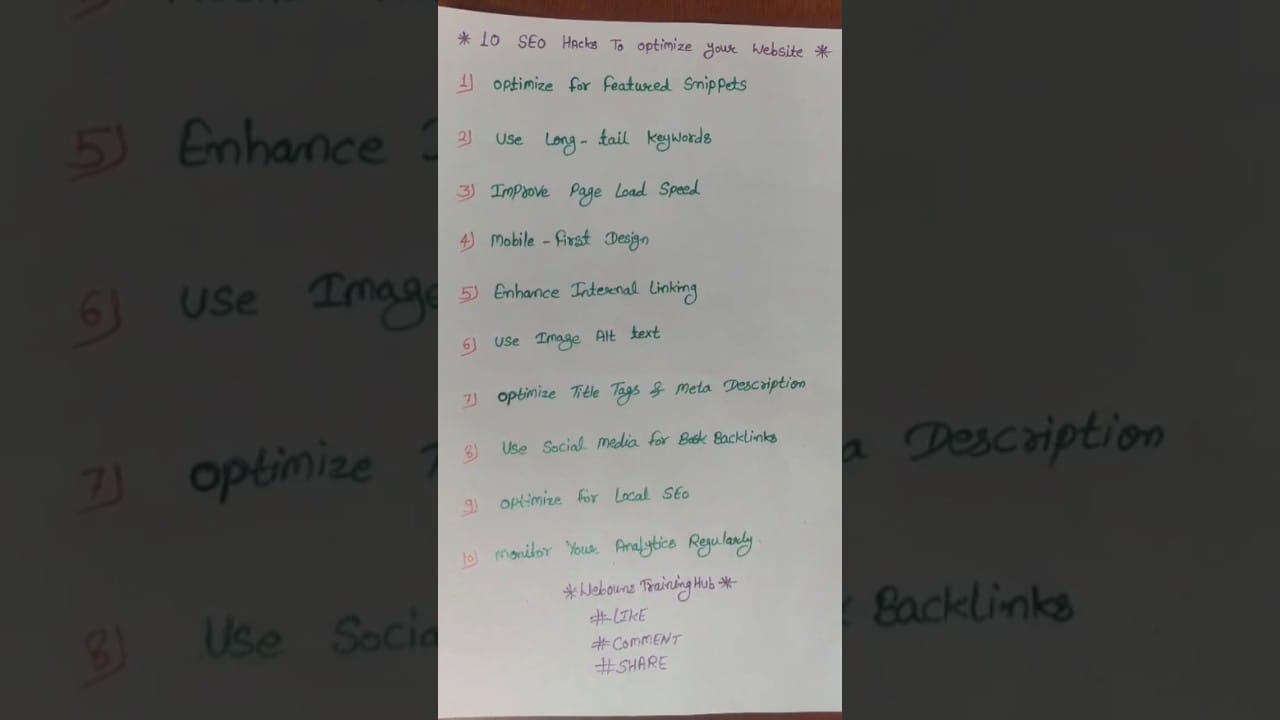 * 10 SEO Hacks To optimize your Website *
1) optimize for Featured Snippets
2) Use Long-tail keywords
3) Improve Page Load Speed
4) Mobile-first Design
5) Enhance Internal Linking
6) Use Image Alt text
7) optimize Title Tags & Meta Description
8) Use Social media for Backlinks
9) optimize for Local SEO
10) Monitor Your Analytics Regularly.
* Webouns Training Hub *
#LIKE
#COMMENT
#SHARE
5) Enhance
6) Use Image
7) optimize
a Description
8) Use Socia
Backlinks